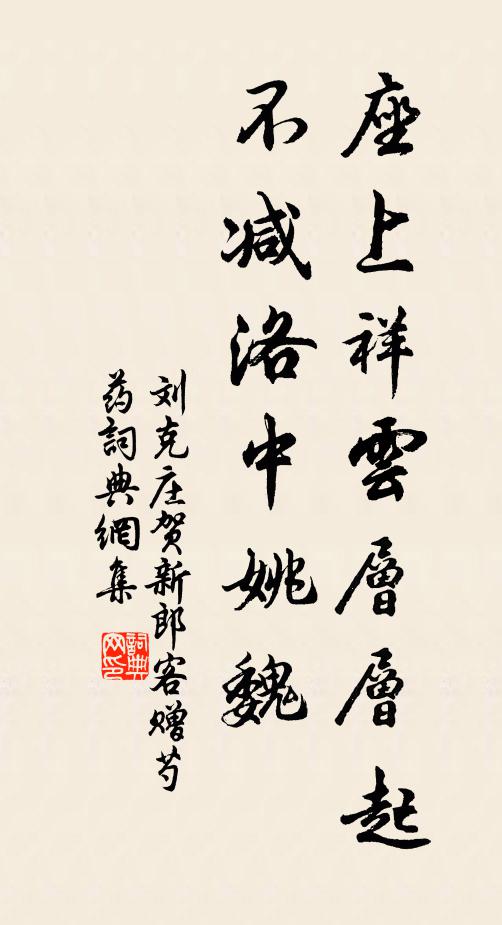 座上祥雲層層起
不减洛中姚魏
刘克庄贺新郎客赠芍
药詞典網集
詞典網印